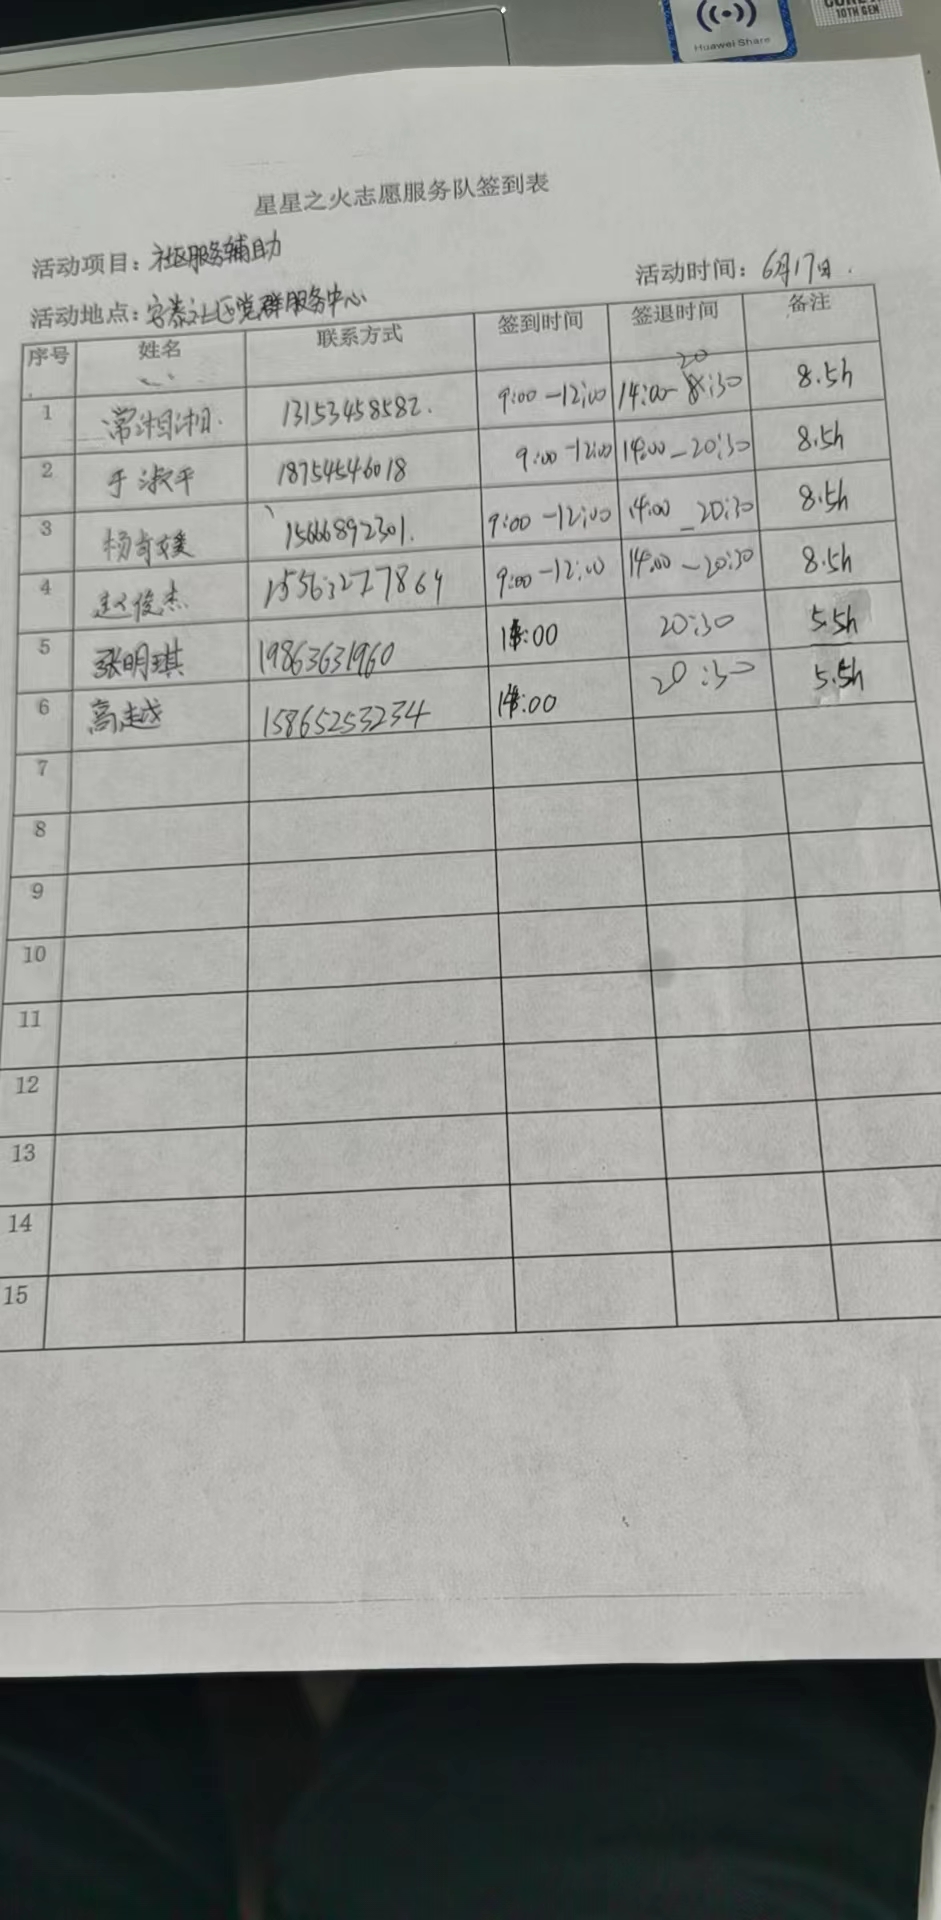 Huawei Share
CORE
10TH GEN
星星之火志愿服务队签到表
活动项目：社区服务辅助
活动时间：6月17日.
活动地点：安泰社区党群服务中心
序号 姓名 联系方式 签到时间 签退时间 备注
1 常湘湘. 13153458582. 9:00-12:00 14:00-20:30 8.5h
2 于淑平 18754546018 9:00-12:00 14:00-20:30 8.5h
3 杨奇媛 15666892301. 9:00-12:00 14:00-20:30 8.5h
4 赵俊杰 15563277864 9:00-12:00 14:00-20:30 8.5h
5 张明琪 19863631960 :00 20:30 5.5h
6 高越 15865253234 14:00 20:30 5.5h
7
8
9
10
11
12
13
14
15